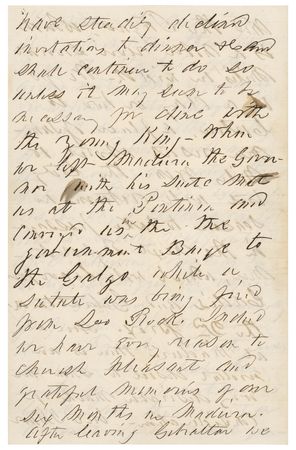 have steadily declined
invitations to dinner &c and
shall continue to do so
unless it may seem to be
necessary for dine with
the young King - When
we left Madeira the Gover-
nor with his suite met
us at the Pontinia and
conveyed us in the the
government Barge to
the Galgo while a
salute was being fired
from Loo Rock. Indeed
we have every reason to
cherish pleasant and
grateful memories of our
six months in Madeira.
After leaving Gibraltar we